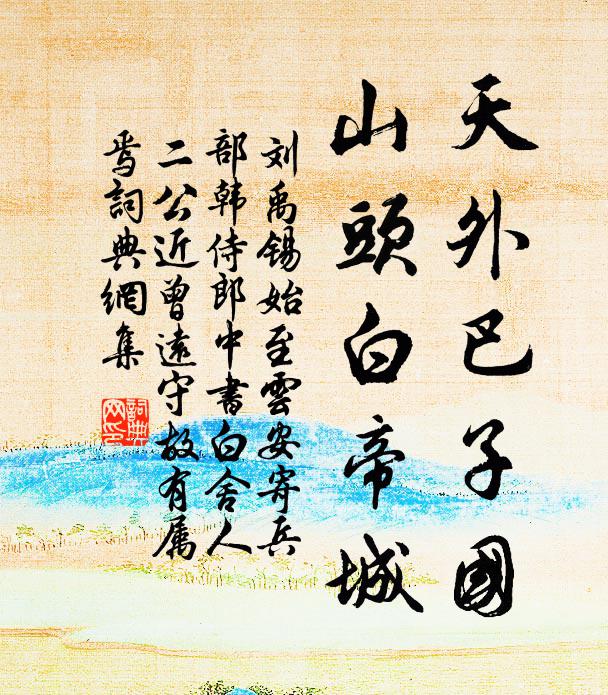 天外巴子國
山頭白帝城
刘禹锡始至雲安寄兵
部韩侍郎中書白舍人
二公近曾遠守故有属
焉詞典網集
詞典网印